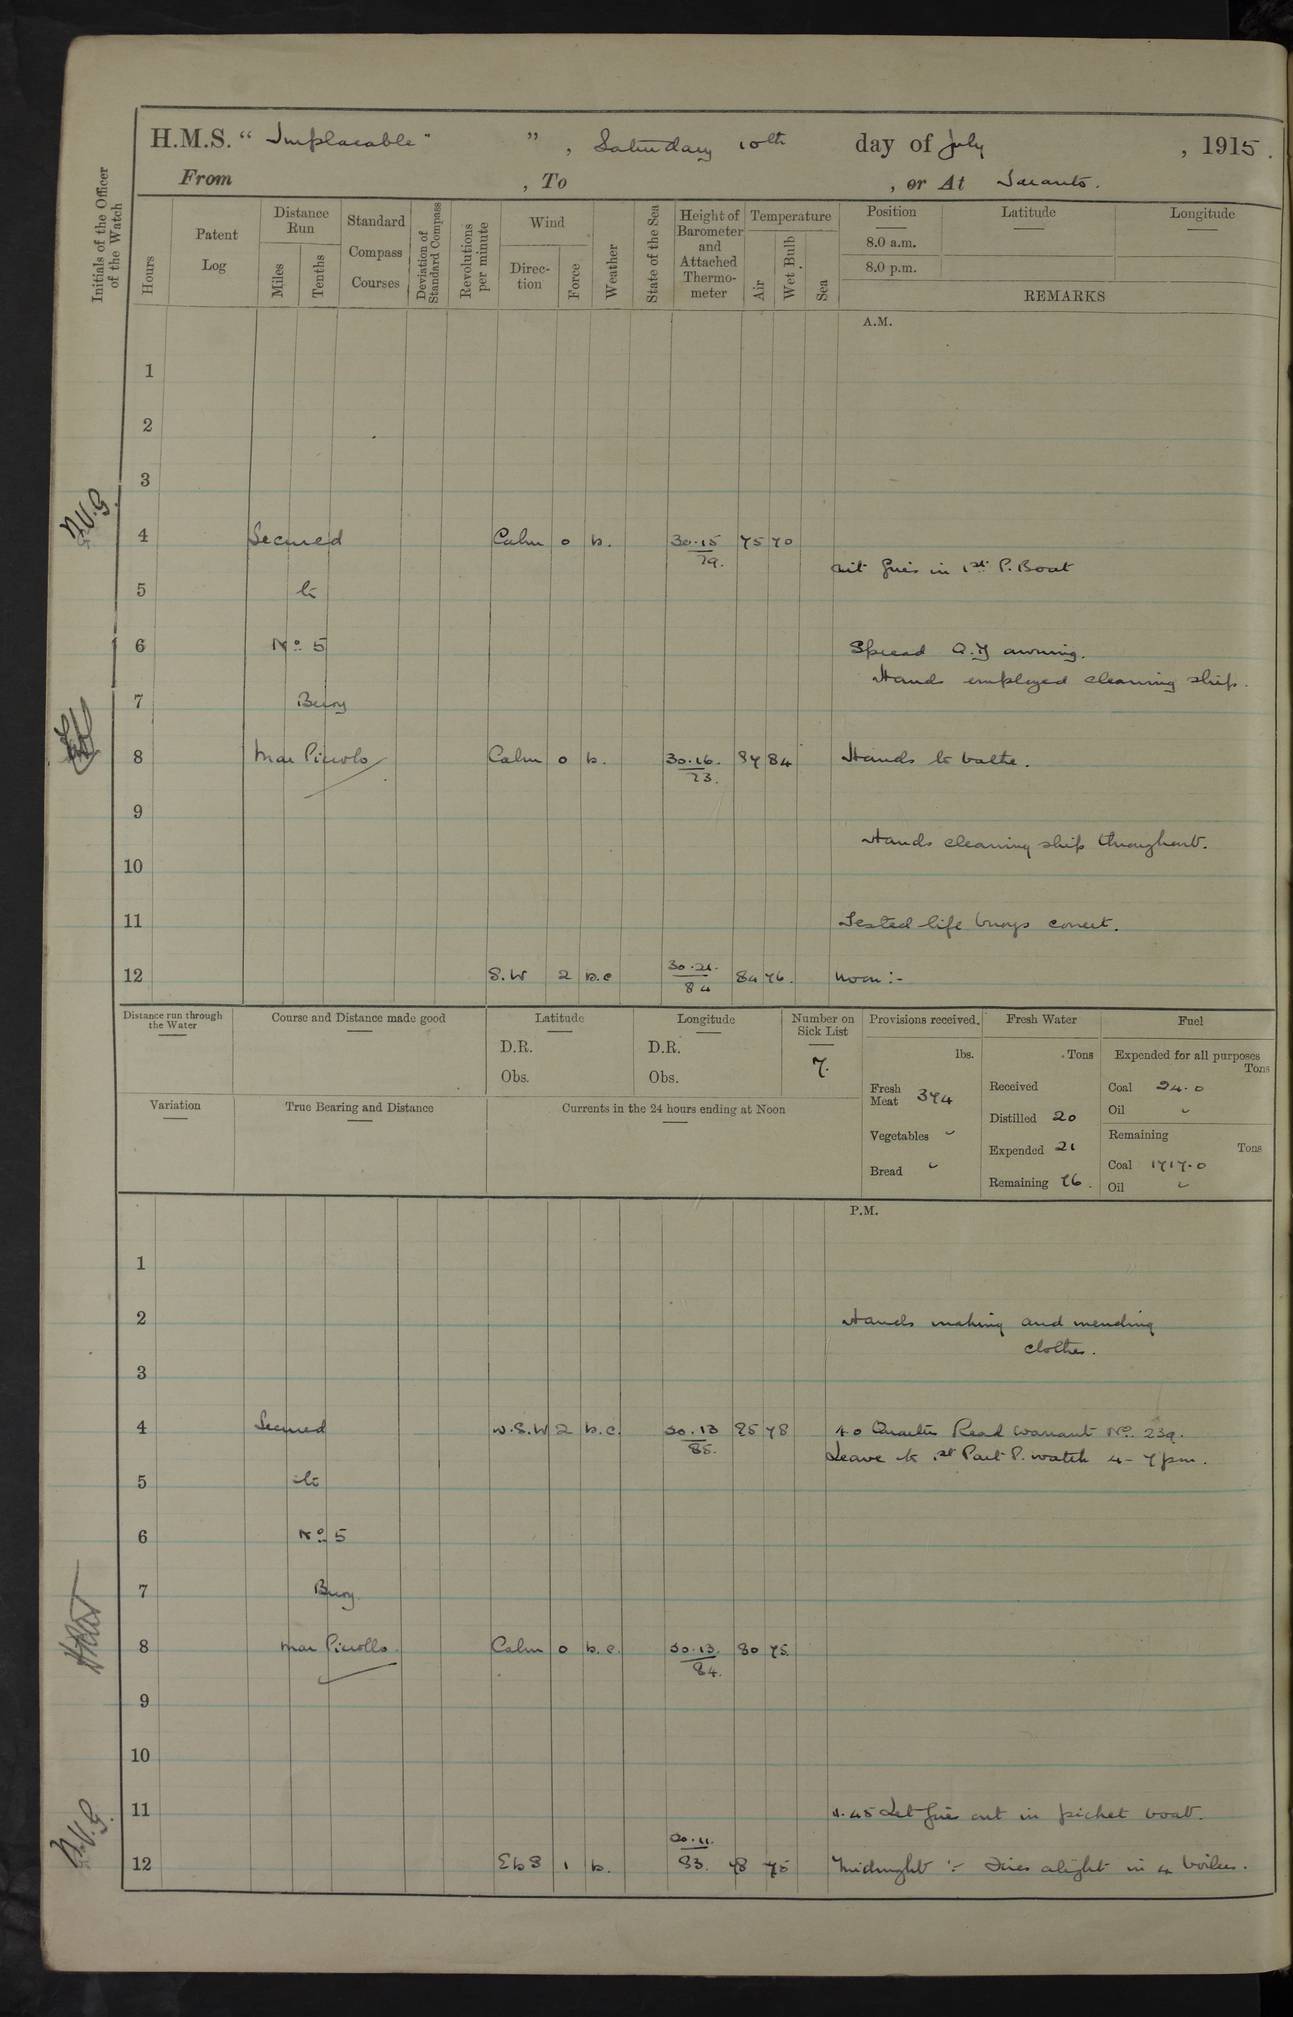 H.M.S. “ Implacable " ” , Saturday 10th day of July , 1915.
From , To , or At Taranto.
Initials of the Officer of the Watch
Hours
Patent Log
Distance Run
Miles
Tenths
Standard Compass Courses
Deviation of Standard Compass
Revolutions per minute
Wind
Direction
Force
Weather
State of the Sea
Height of Barometer and Attached Thermometer
Temperature
Air
Wet Bulb
Sea
Position Latitude Longitude
8.0 a.m.
8.0 p.m.
REMARKS
A.M.
1
2
3
4 Secured Calm 0 b. 30.15 75 70
79.
fires in 1st P. Boat
5 to
6 No 5 Spread Q.D awning.
Hands employed cleaning ship.
7 Buoy
8 Mar Piccolo Calm 0 b. 30.16. 87 84 Hands to bathe.
9
Hands cleaning ship throughout.
10
11 Tested life buoys correct.
12 S.W 2 b.c 30.21. 84 76. Noon :-
84
Distance run through the Water
Course and Distance made good
Latitude
D.R.
Obs.
Longitude
D.R.
Obs.
Number on Sick List
7.
Provisions received.
lbs.
Fresh Meat 374
Vegetables
Bread
Fresh Water
Tons
Received
Distilled 20
Expended 21
Remaining 76.
Fuel
Expended for all purposes
Tons
Coal 24.0
Oil
Remaining
Tons
Coal 1717.0
Oil
Variation
True Bearing and Distance
Currents in the 24 hours ending at Noon
P.M.
1
2 Hands making and mending
clothes.
3
4 Secured W.S.W 2 b.c. 30.13 85 78 4.0 Quarters Read warrant No. 239.
85.
Leave to 1st Part P. watch 4 - 7 pm.
5 to
6 No 5
7 Buoy
8 Mar Picollo. Calm 0 b.c. 30.13. 80 75.
84.
9
10
11 Let fires out in picket boat.
30.11.
12 EbS 1 b. 83. 78 75 Midnight :- Fires alight in 4 boilers.